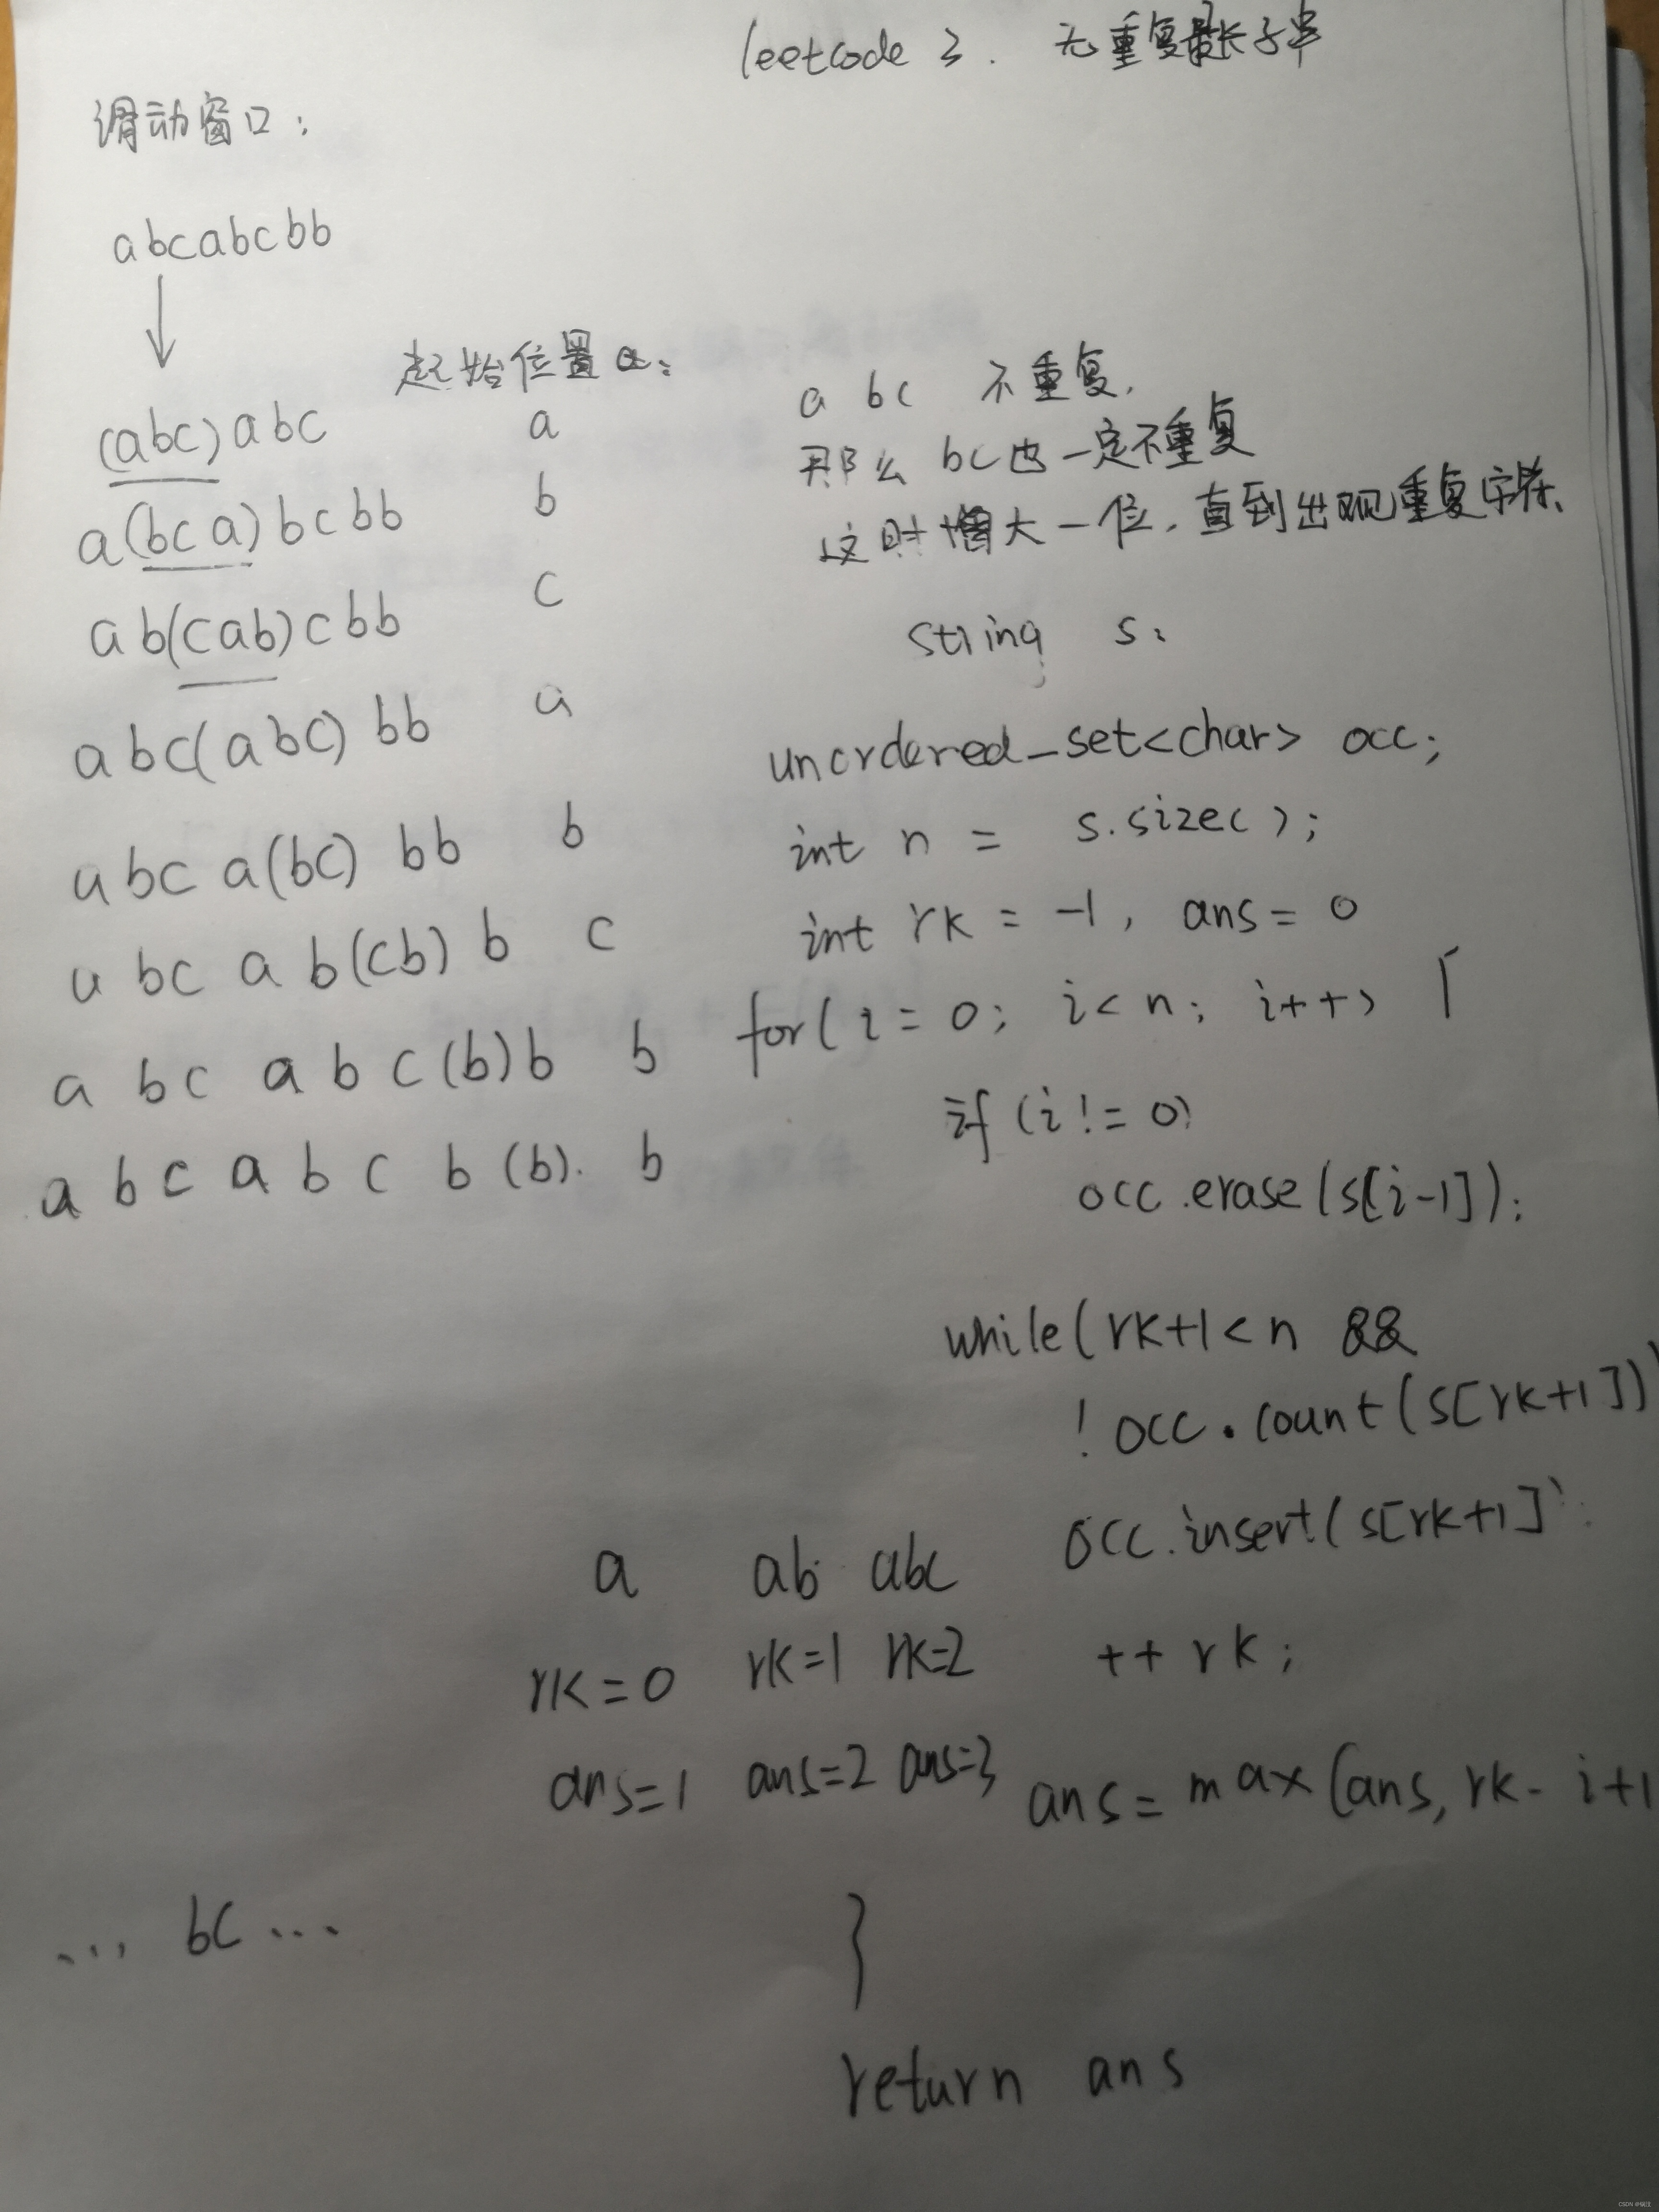 leetcode 3. 无重复最长子串
滑动窗口:
abcabcbb
起始位置a:
(abc)abc a
a(bca)bcbb b
ab(cab)cbb c
abc(abc)bb a
abc a(bc) bb b
abc a b(cb) b c
a bc a b c (b) b b
a b c a b c b (b). b
a bc 不重复,
那么 bc也一定不重复
这时增大一位,直到出现重复字符、
string s;
unordered_set<char> occ;
int n = s.size();
int rk = -1, ans = 0
for(i = 0; i < n; i++) {
if (i != 0)
occ.erase(s[i-1]);
while(rk+1<n &&
!occ.count(s[rk+1]))
occ.insert(s[rk+1]
++rk;
a ab abc
rk=0 rk=1 rk=2
ans=1 ans=2 ans=3
ans = max(ans, rk-i+1
... bc ...
}
return ans